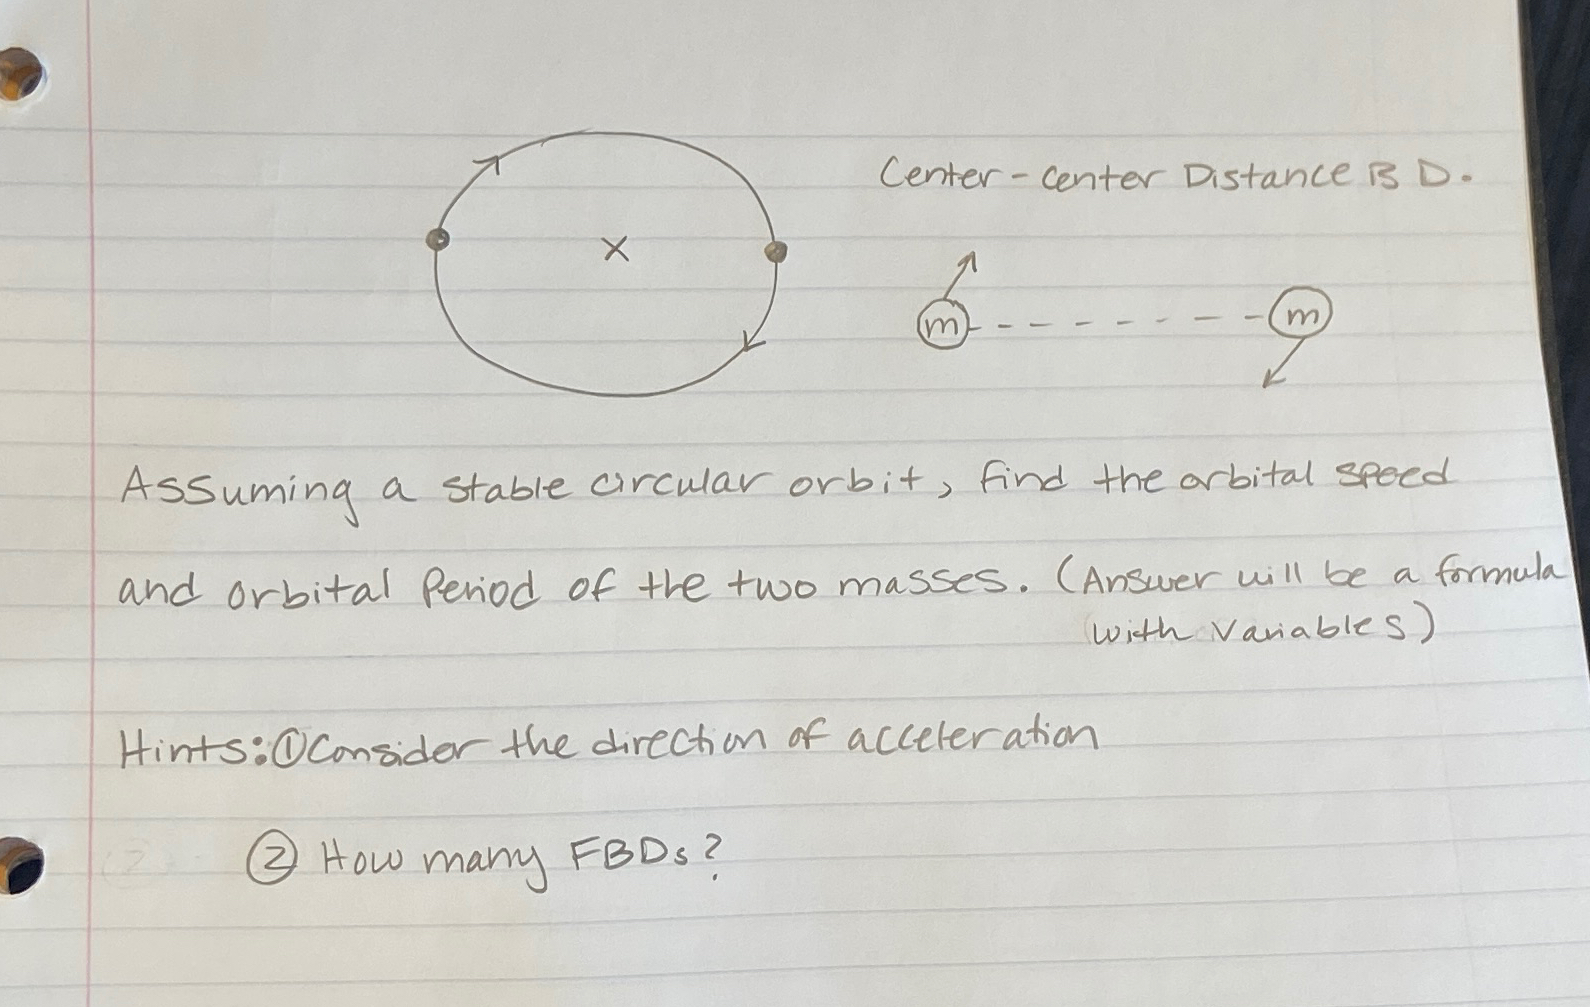 Center-Center Distance is D.
x
m m
Assuming a stable circular orbit, find the orbital speed
and orbital Period of the two masses. (Answer will be a formula
with variables)
Hints: ① Consider the direction of acceleration
② How many FBDs?